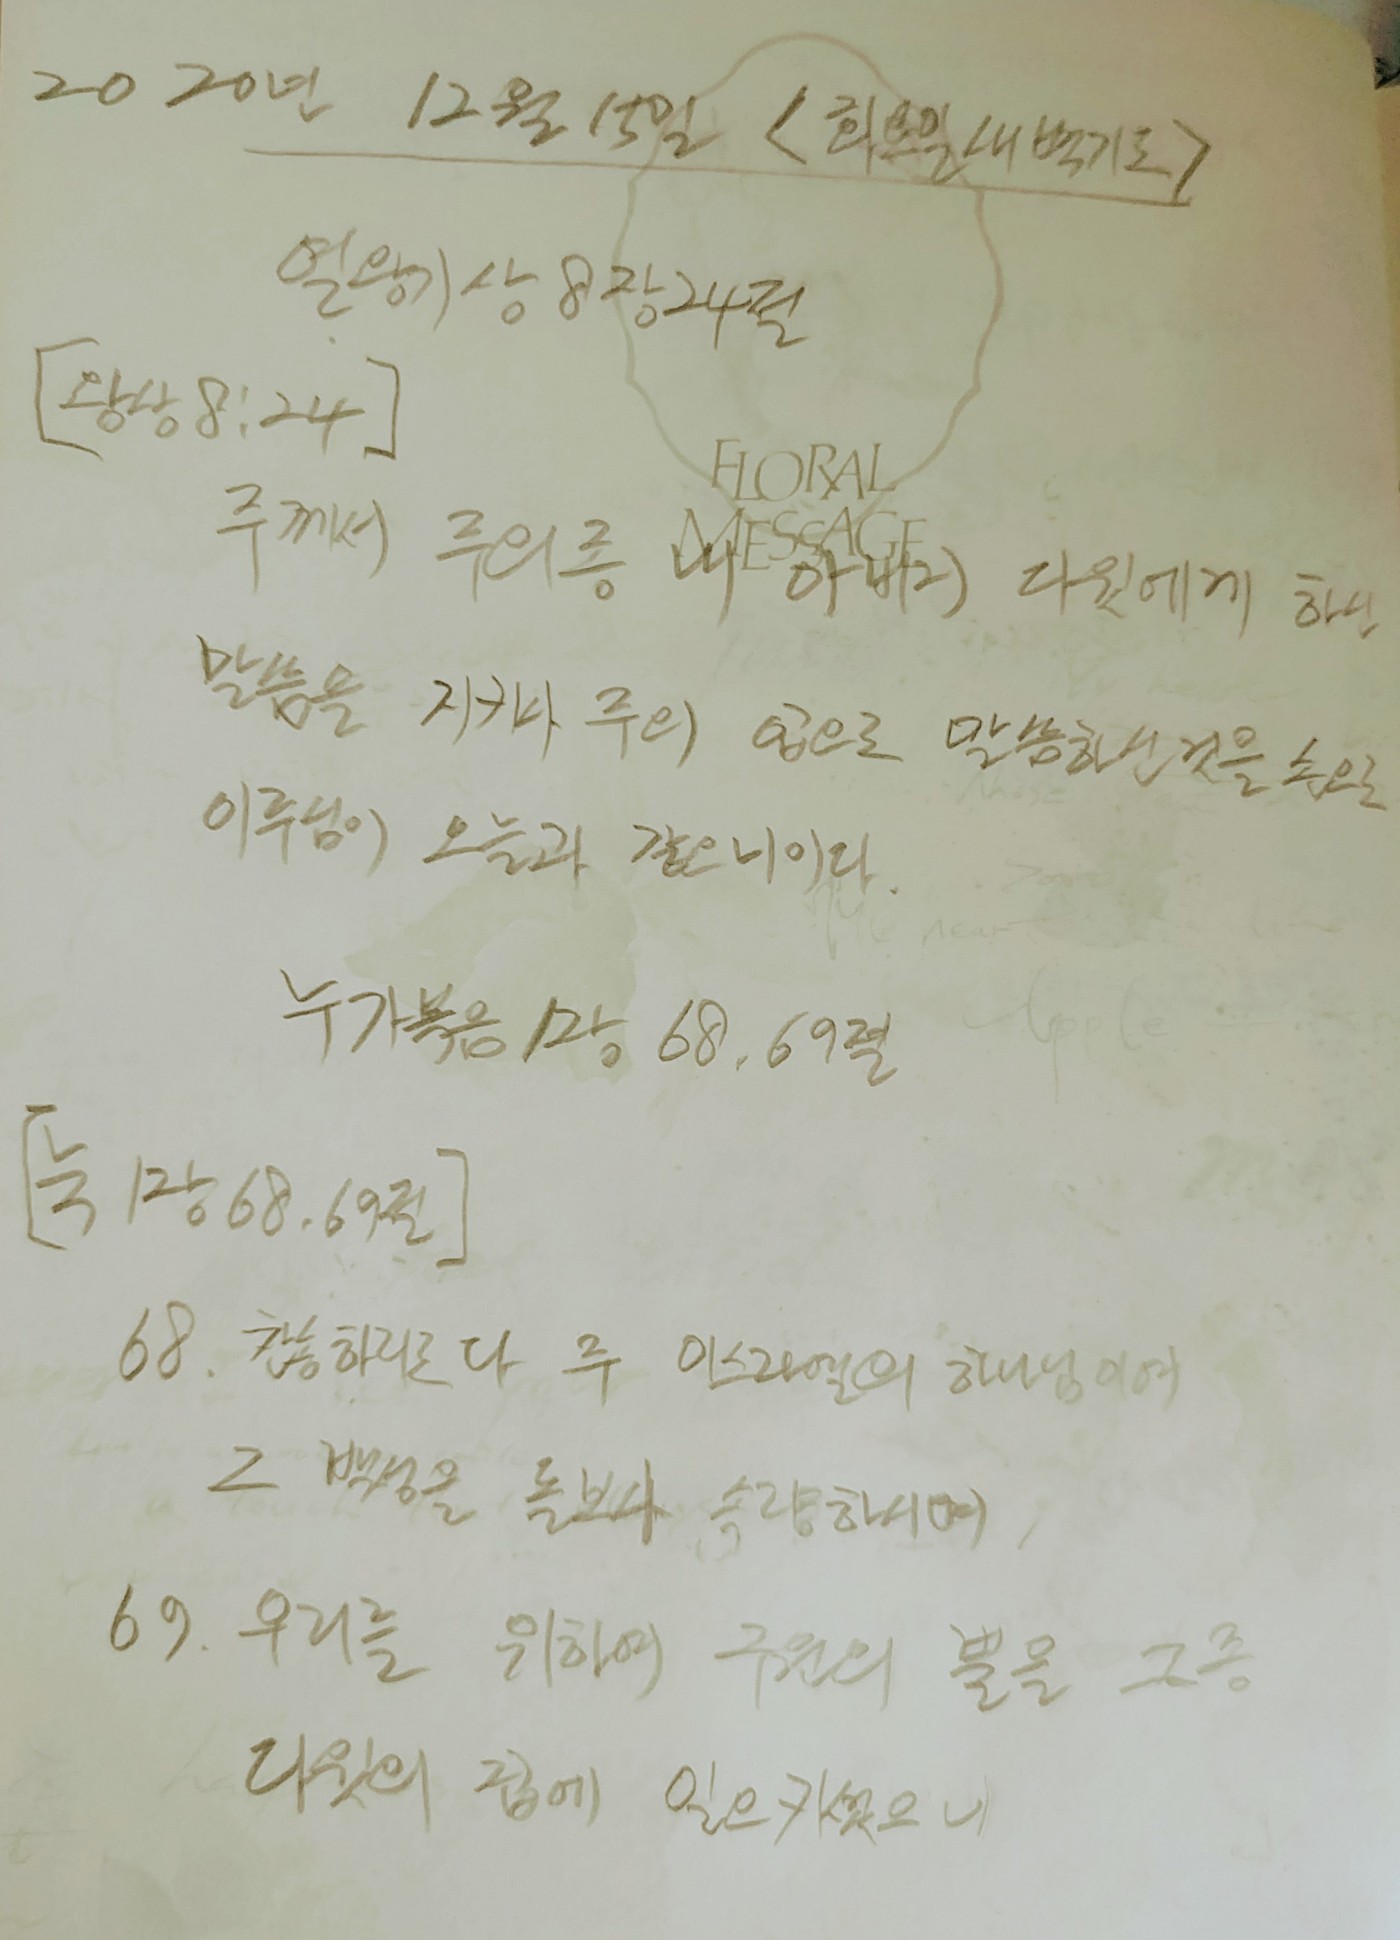 2020년 12월 15일 <화요일 새벽기도>
열왕기상 8장 24절
[왕상 8:24]
FLORAL
MESSAGE
주께서 주의 종 내 아버지 다윗에게 하신
말씀을 지키사 주의 입으로 말씀하신 것을 손으로
이루심이 오늘과 같으니이다.
누가복음 1장 68.69절
[눅 1장 68.69절]
68. 찬송하리로다 주 이스라엘의 하나님이여
그 백성을 돌보사 속량하시며,
69. 우리를 위하여 구원의 뿔을 그 종
다윗의 집에 일으키셨으니
Apple